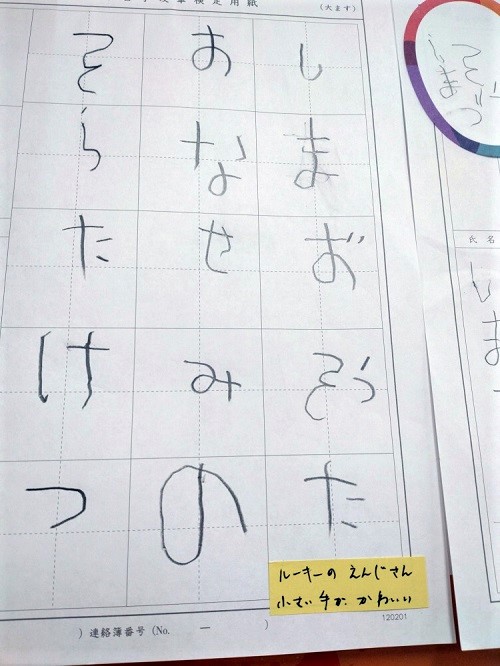 筆検定用紙
(大ます)
しまおぞた
おなせみの
そらたけつ
ルーキーの えんじさん
小さい手が かわいい
)連絡簿番号(No. ー )
120201
氏名
しま